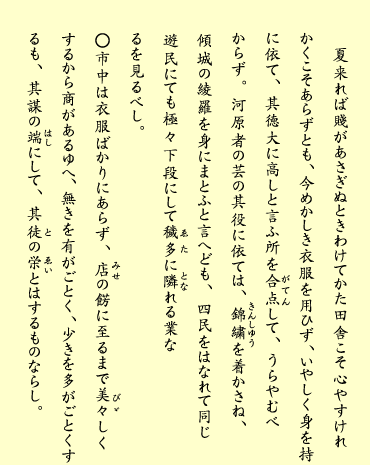 夏来れば賤があさぎぬときわけてかた田舎こそ心やすけれ
かくこそあらずとも、今めかしき衣服を用ひず、いやしく身を持
に依て、其徳大に高しと言ふ所を合点して、うらやむべ
からず。河原者の芸の其役に依ては、錦繍を着かさね、
傾城の綾羅を身にまとふと言へども、四民をはなれて同じ
遊民にても極々下段にして穢多に隣れる業な
るを見るべし。
〇市中は衣服ばかりにあらず、店の餝に至るまで美々しく
するから商があるゆへ、無きを有がごとく、少きを多がごとくす
るも、其謀の端にして、其徒の栄とはするものならし。